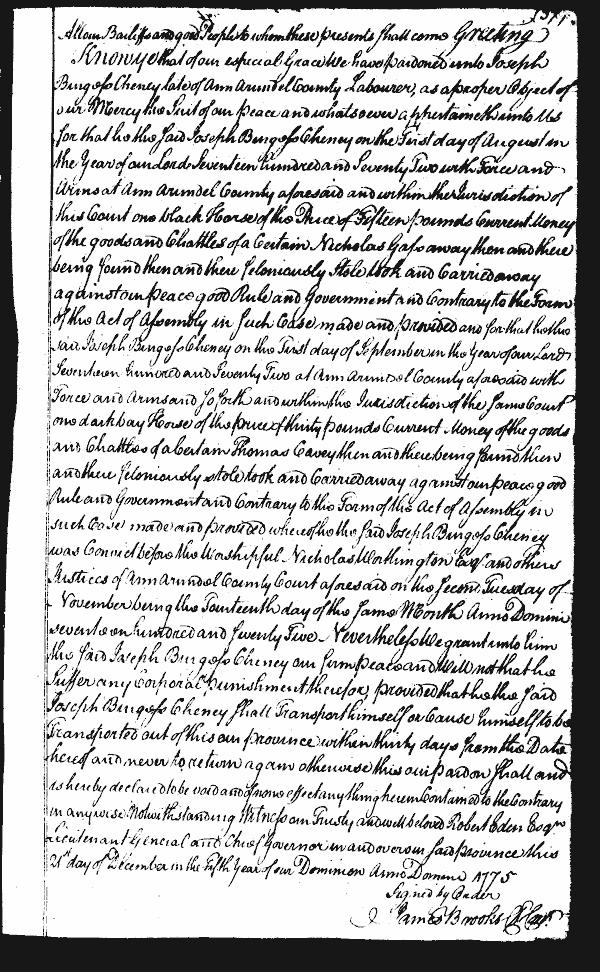 All our Bailiffs and good People to whom these presents shall come Greeting
Know ye that of our especial Grace We have pardoned unto Joseph
Burgess Cheney late of Ann Arundel County Labourer, as a proper Object of
our Mercy the Suit of our Peace and whatsoever appertaineth unto Us
for that he the said Joseph Burgess Cheney on the First day of August in
the Year of our Lord Seventeen hundred and Seventy Two with Force and
Arms at Ann Arundel County aforesaid and within the Jurisdiction of
this Court one black Horse of the Price of Fifteen pounds Current Money
of the goods and Chattles of a Certain Nicholas Gassaway then and there
being found then and there feloniously Stole took and Carried away
against our peace good Rule and Government and Contrary to the Form
of the Act of Assembly in such Case made and provided and for that he the
said Joseph Burgess Cheney on the First day of September in the Year of our Lord
Seventeen hundred and Seventy Two at Ann Arundel County aforesaid with
Force and Arms and so forth and within the Jurisdiction of the same Court
one dark bay Horse of the price of thirty pounds Current Money of the goods
and Chattles of a Certain Thomas Cavey then and there being found then
and there feloniously stole took and Carried away against our peace good
Rule and Government and Contrary to the Form of the Act of Assembly in
such Case made and provided whereof he the said Joseph Burgess Cheney
was Convict before the Worshipful Nicholas Worthington Esqr and others
Justices of Ann Arundel County Court aforesaid on the second Tuesday of
November being the Fourteenth day of the same Month Anno Domini
seventeen hundred and seventy Five Nevertheless We grant unto him
the said Joseph Burgess Cheney our firm peace and Will not that he
Suffer any Corporal Punishment therefor, provided that he the said
Joseph Burgess Cheney shall Transport himself or Cause himself to be
Transported out of this our province within thirty days from the Date
hereof and never to return again otherwise this our pardon shall and
is hereby declared to be void and of none effect any thing herein Contained to the Contrary
in any wise Notwithstanding Witness our Trusty and well beloved Robert Eden Esqr
Lieutenant General and Chief Governor in and over our said province this
21st day of December in the Fifth Year of our Dominion Anno Domini 1775
Signed by Order
James Brooks